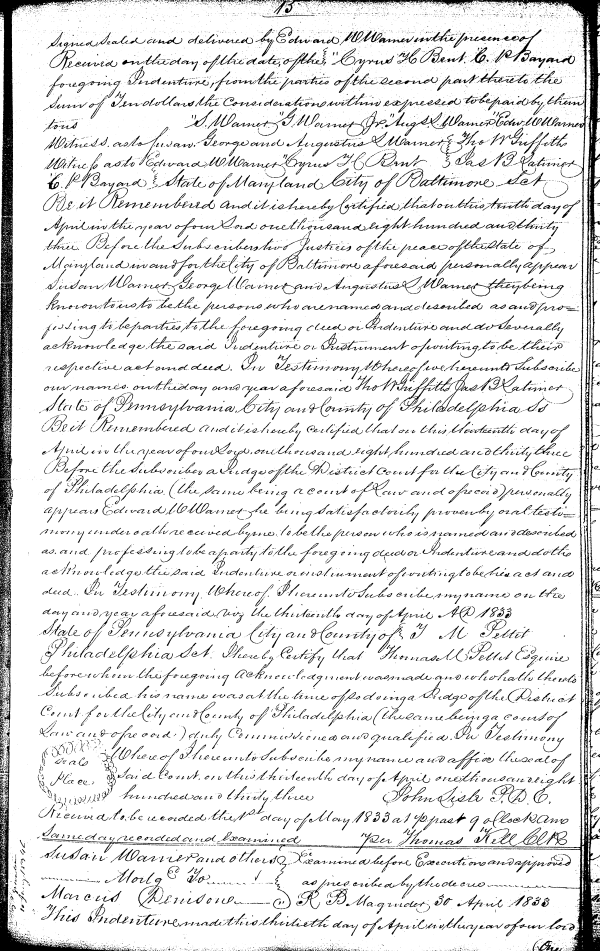 13
Signed Sealed and delivered by Edward W Warner in the presence of
Received on the day of the date of the } "Cyrus H Bent. C. P Bayard
foregoing Indenture, from the parties of the second part thereto the
Sum of Ten dollars the Consideration within expressed to be paid by them
to us "S. Warner" G. Warner Jr." Augs L Warner" Edw W Warner
Witness. as to Susan. George and Augustus L Warner } Tho W Griffiths
Witness as to Edward W Warner Cyrus H Bent } Jas B Latimer
C. P Bayard } State of Maryland City of Baltimore Sct
Be it Remembered and it is hereby Certified that on this tenth day of
April in the year of our Lord one thousand eight hundred and thirty
three Before the Subscribers two Justices of the peace of the State of
Maryland in and for the City of Baltimore aforesaid personally appear
Susan Warner George Warner and Augustus L Warner they being
known to us to be the persons who are named and described as and pro=
fessing to be parties to the foregoing deed or Indenture and do Severally
acknowledge the said Indenture or Instrument of writing to be their
respective act and deed. In Testimony Whereof we hereunto Subscribe
our names on the day and year aforesaid Tho W Griffith Jas B Latimer
State of Pennsylvania City and County of Philadelphia Ss
Be it Remembered and it is hereby certified that on this thirteenth day of
April in the year of our Lord one thousand eight hundred and thirty three
Before the Subscriber a Judge of the District Court for the City and County
of Philadelphia (the same being a court of Law and of record) personally
appears Edward W Warner he being satisfactorily proven by oral testi=
mony under oath received by me to be the person who is named and described
as and professing to be a party to the foregoing deed or Indenture and doth
acknowledge the said Indenture or instrument of writing to be his act and
deed. In Testimony Whereof I hereunto Subscribe my name on the
day and year aforesaid viz the thirteenth day of April AD 1833
State of Pennsylvania City and County of } T M Pettit
Philadelphia Sct. I hereby Certify that Thomas M Pettit Esquire
before whom the foregoing acknowledgment was made and who hath thereto
Subscribed his name was at the time of so doing a Judge of the District
Court for the City and County of Philadelphia (the same being a court of
Law and of record) duly Commissioned and qualified In Testimony
Seals Place
Whereof I hereunto Subscribe my name and affix the seal of
Said Court on this thirteenth day of April one thousand eight
hundred and thirty three John Lisle P.D.C.
Received to be recorded the 1st day of May 1833 at ½ past 9 oclock and
Same day recorded and examined per Thomas Kell Clk
Susan Warner and others } Examined before Execution and approved
Mortge To as prescribed by the decree
Marcus Denison R B Magruder 30 April 1833
This Indenture made this thirtieth day of April in the year of our lord